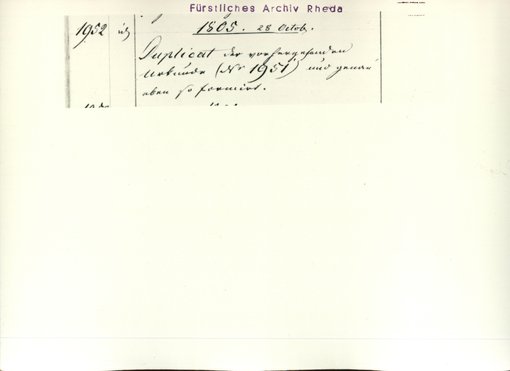 Fürstliches Archiv Rheda
1952 1805. 28 Octob.
Duplicat der vorhergehenden
Urkunde (Nr 1951) und genau
eben so formirt.